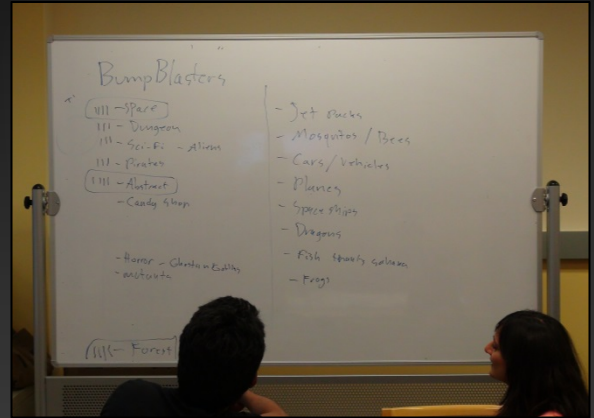 BumpBlasters
IIII - Space
III - Dungeon
III - Sci-Fi - Aliens
III - Pirates
IIII - Abstract
- Candy Shop
- Horror -
IIII - Forest
- Jet Packs
- Mosquitos / Bees
- Cars / Vehicles
- Planes
- Space Ships
- Dragons
- Fish
- Frogs